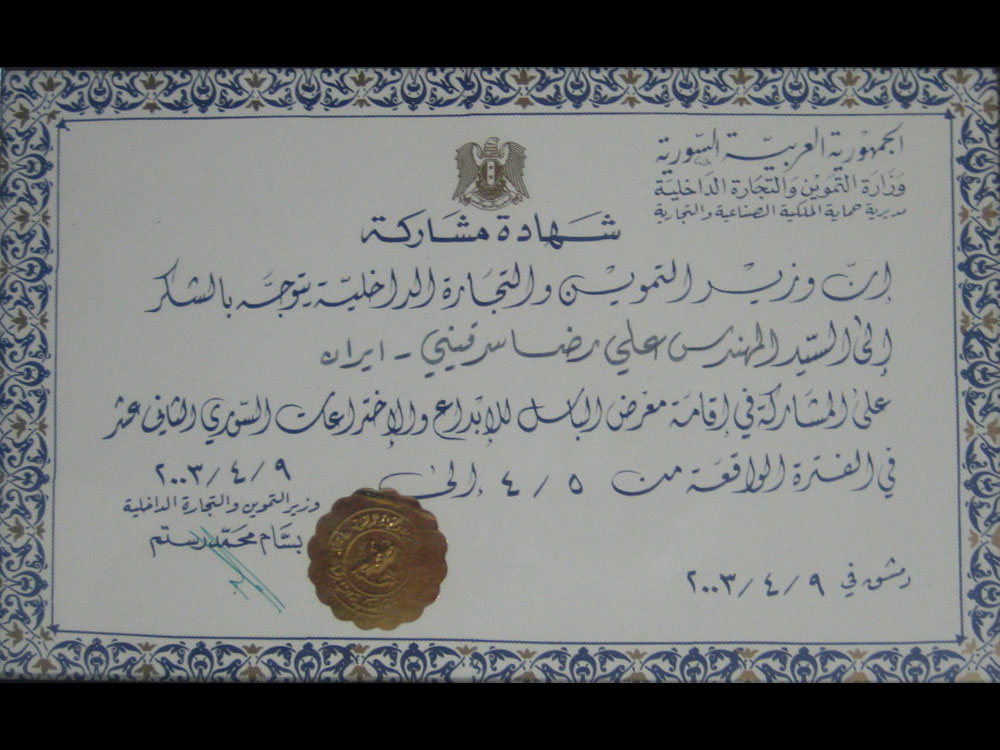 الجمهورية العربيّة السّورية
وزارة التموين والتجارة الداخلية
مديرية حماية الملكية الصناعية والتجارية
شهادة مشاركة
إنّ وزير التموين والتجارة الداخليّة يتوجّه بالشكر
إلى السّيّد المهندس علي رضا سرقيني - ايران
على المشاركة في إقامة معرض الباسل للإبداع والإختراعات السّوري الثاني عشر
في الفترة الواقعة من ٥ / ٤ إلى ٩ / ٤ / ٢٠٠٣
وزير التموين والتجارة الداخلية
بسّام محمّد رستم
دمشق في ٩ / ٤ / ٢٠٠٣